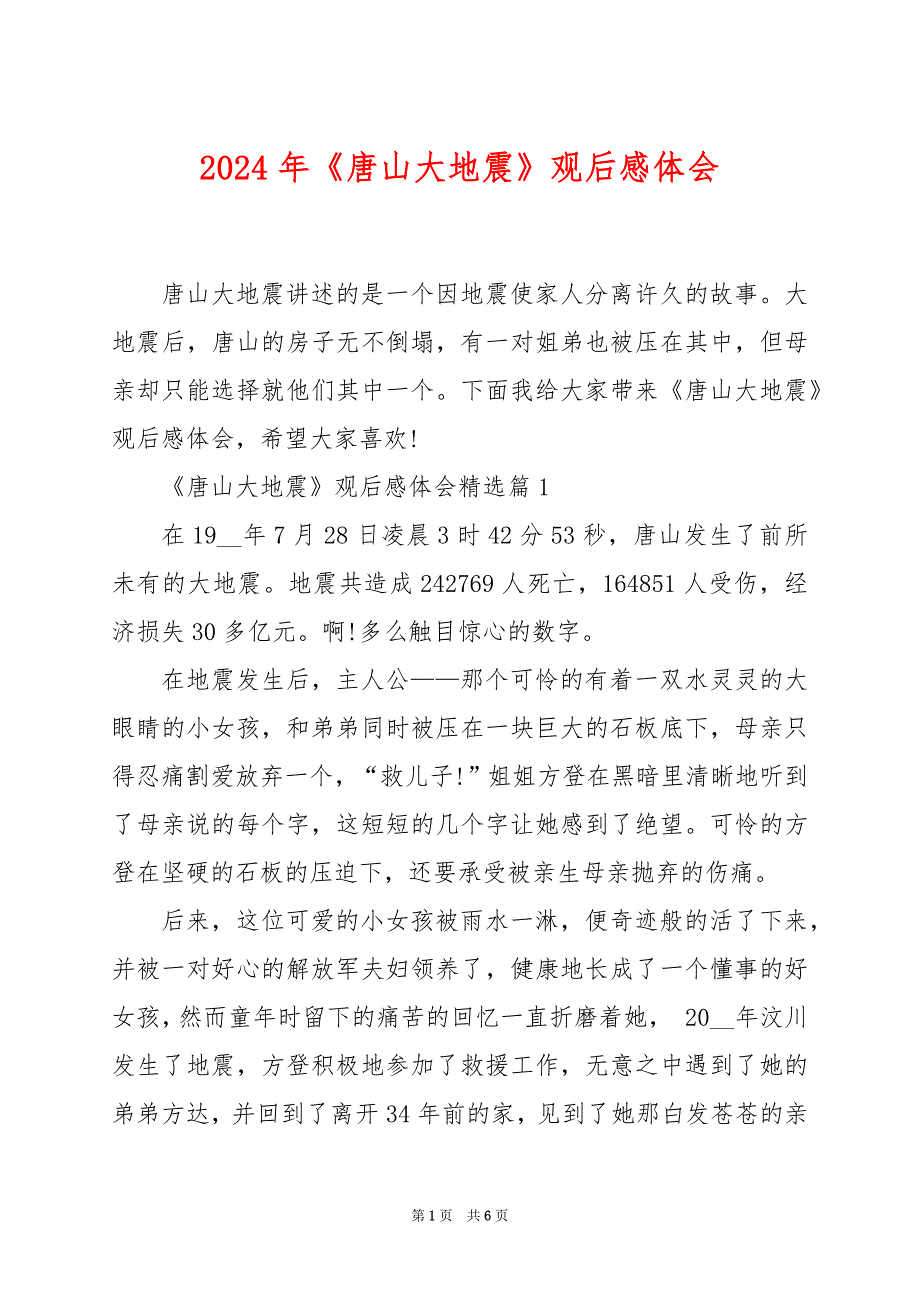 2024 年《唐山大地震》观后感体会
唐山大地震讲述的是一个因地震使家人分离许久的故事。大
地震后，唐山的房子无不倒塌，有一对姐弟也被压在其中，但母
亲却只能选择就他们其中一个。下面我给大家带来《唐山大地震》
观后感体会，希望大家喜欢!
《唐山大地震》观后感体会精选篇 1
在 19__年 7 月 28 日凌晨 3 时 42 分 53 秒，唐山发生了前所
未有的大地震。地震共造成 242769 人死亡，164851 人受伤，经
济损失 30 多亿元。啊!多么触目惊心的数字。
在地震发生后，主人公——那个可怜的有着一双水灵灵的大
眼睛的小女孩，和弟弟同时被压在一块巨大的石板底下，母亲只
得忍痛割爱放弃一个，“救儿子!”姐姐方登在黑暗里清晰地听到
了母亲说的每个字，这短短的几个字让她感到了绝望。可怜的方
登在坚硬的石板的压迫下，还要承受被亲生母亲抛弃的伤痛。
后来，这位可爱的小女孩被雨水一淋，便奇迹般的活了下来，
并被一对好心的解放军夫妇领养了，健康地长成了一个懂事的好
女孩，然而童年时留下的痛苦的回忆一直折磨着她， 20__年汶川
发生了地震，方登积极地参加了救援工作，无意之中遇到了她的
弟弟方达，并回到了离开 34 年前的家，见到了她那白发苍苍的亲
第 1 页 共 6 页